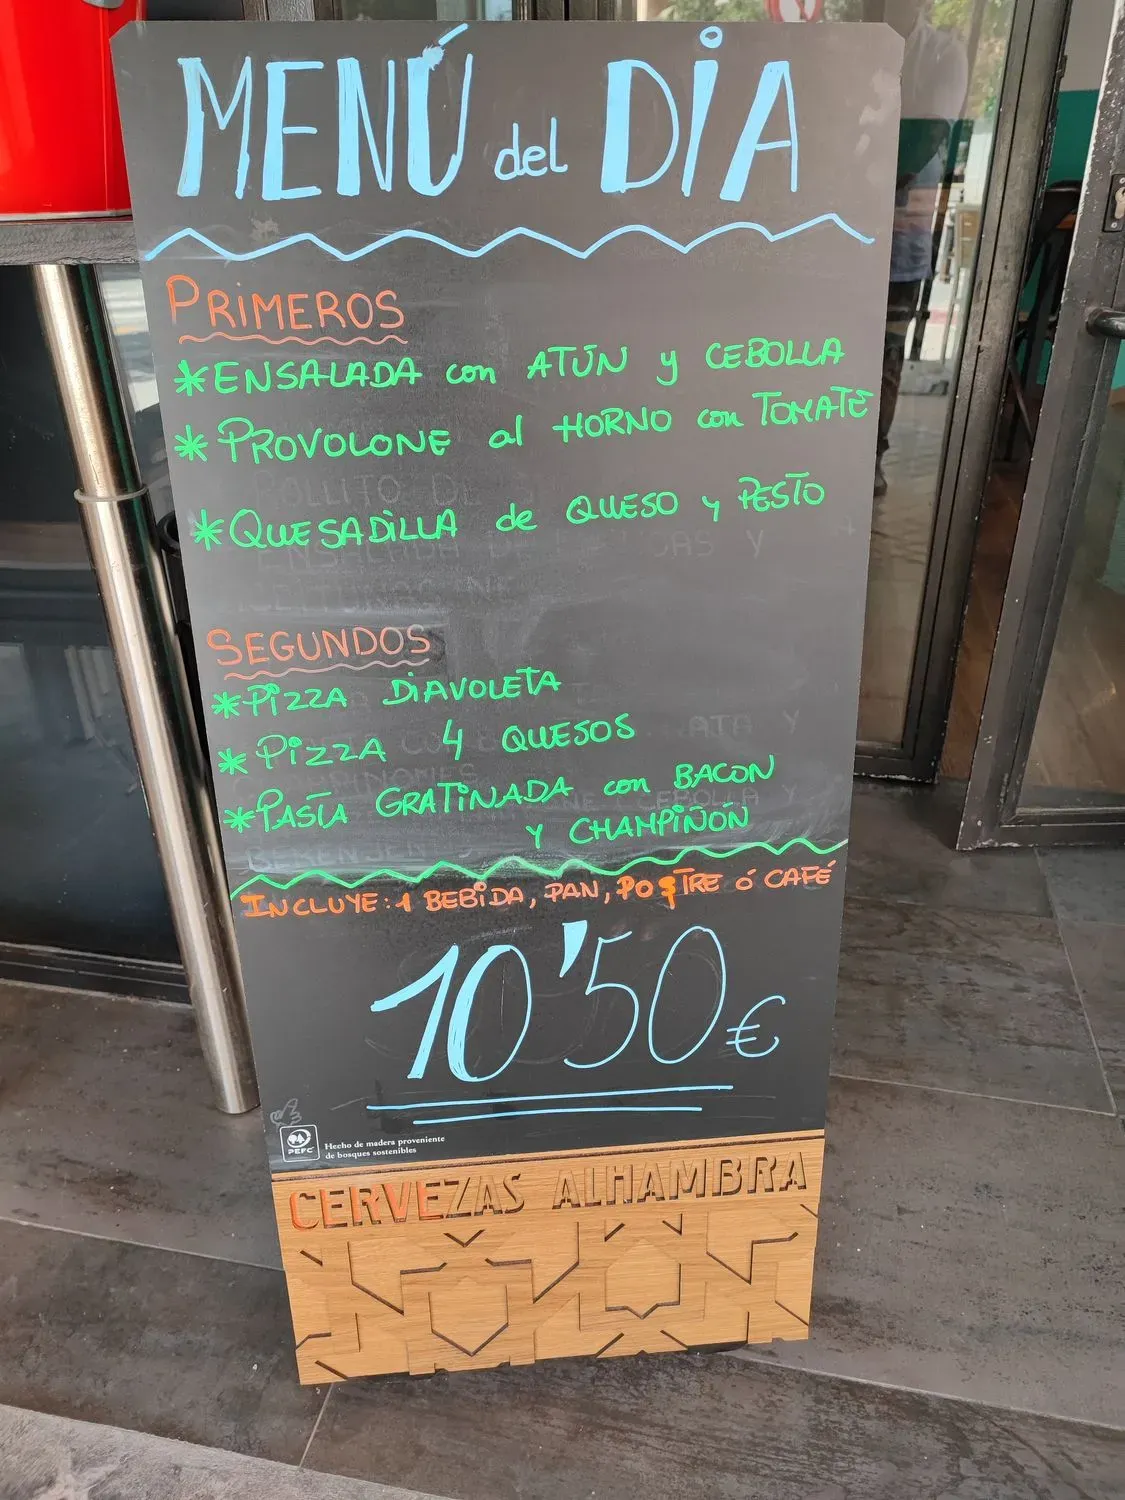 MENÚ del DÍA
PRIMEROS
*ENSALADA con ATÚN y CEBOLLA
*PROVOLONE al HORNO con TOMATE
*QUESADILLA de QUESO y PESTO
SEGUNDOS
*PIZZA DIAVOLETA
*PIZZA 4 QUESOS
*PASTA GRATINADA con BACON
Y CHAMPIÑÓN
INCLUYE: 1 BEBIDA, PAN, POSTRE ó CAFÉ
10'50€
PEFC
Hecho de madera proveniente
de bosques sostenibles
CERVEZAS ALHAMBRA